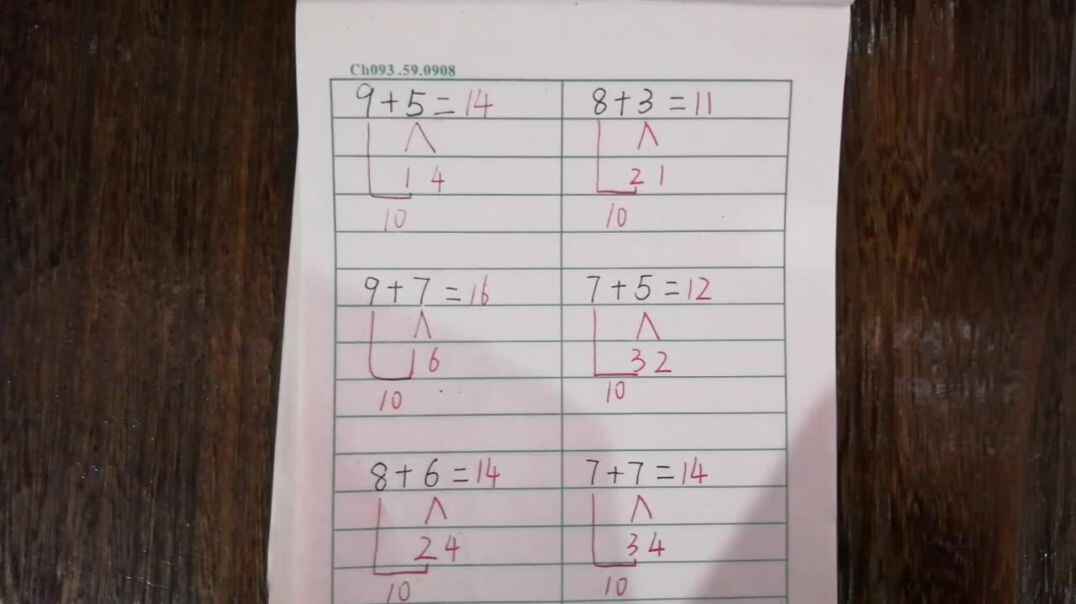 Ch093.59.0908
9+5=14 8+3=11
1 4 2 1
10 10
9+7=16 7+5=12
1 6 3 2
10 10
8+6=14 7+7=14
2 4 3 4
10 10